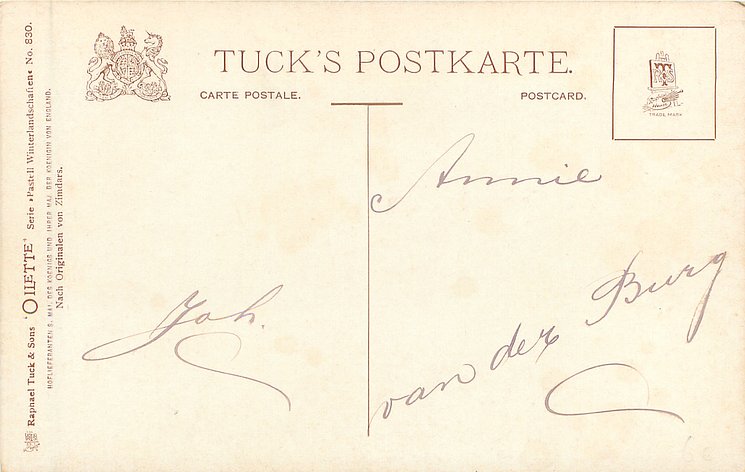 TUCK'S POSTKARTE.
CARTE POSTALE.
POSTCARD.
TRADE MARK
Annie
van der Burg
Joh.
Raphael Tuck & Sons "OIlETTE" Serie »Pastell Winterlandschaften« No. 830.
HOFLIEFERANTEN S. MAJ. DES KOENIGS UND IHRER MAJ. DER KOENIGIN VON ENGLAND.
Nach Originalen von Zimdars.